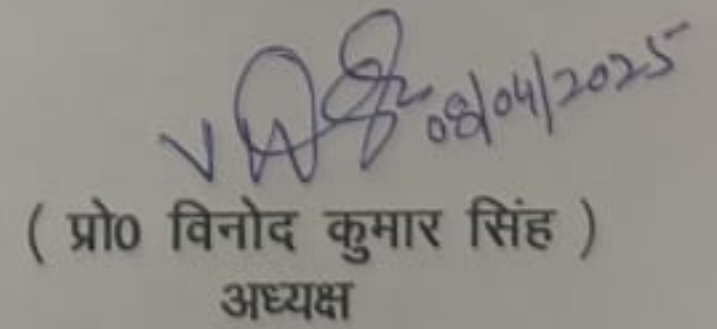 08/04/2025
( प्रो0 विनोद कुमार सिंह )
अध्यक्ष